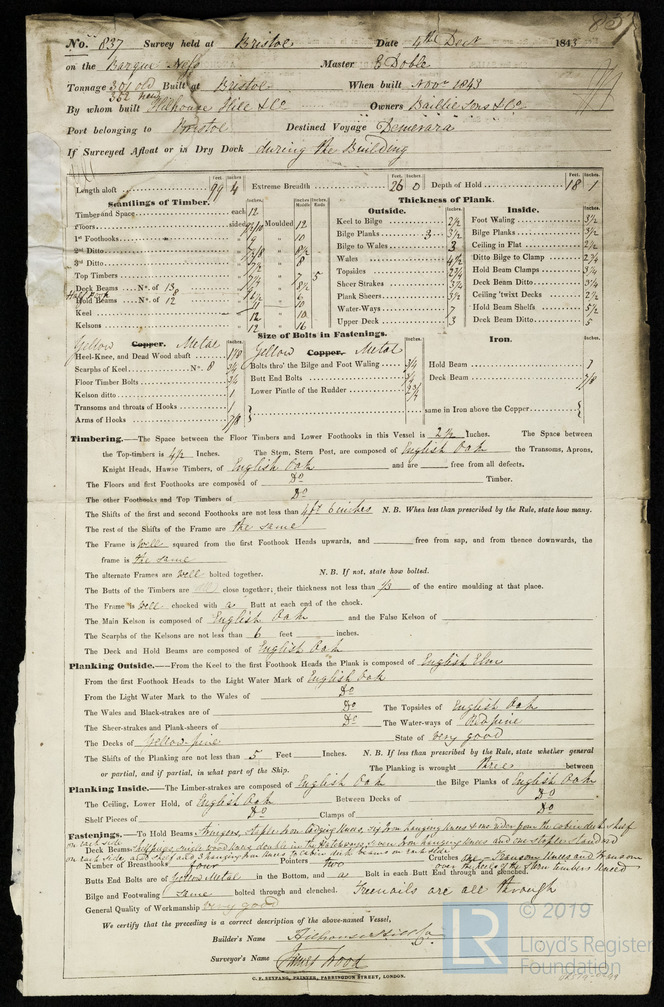 No. 837 Survey held at Bristol Date 4th Decr 1843
on the Barque Ness Master E Doble
Tonnage 301 old Built at Bristol When built Novr 1843
362 new
By whom built Hilhouse Hill & Co Owners Baillie Sons & Co
Port belonging to Bristol Destined Voyage Demerara
If Surveyed Afloat or in Dry Dock during the Building
Feet. Inches. Feet. Inches. Feet. Inches.
Length aloft 99 4 Extreme Breadth 26 0 Depth of Hold 18 1
Scantlings of Timber. Thickness of Plank.
Outside. Inside.
Timber and Space each 12
Floors sided Moulded 12
1st Foothooks 9 " 10
2nd Ditto " 8½
3rd Ditto 7½ " 8
Top Timbers " 7 5
Deck Beams No. of 13 " 8½
Hold Beams No. of 12 " 6
Keel 12 " 10
Kelsons 12 " 16
Keel to Bilge 2½
Bilge Planks 3 3½
Bilge to Wales 3
Wales 4½
Topsides 2¾
Sheer Strakes 3¼
Plank Sheers 3½
Water-Ways 7
Upper Deck 3
Foot Waling 3½
Bilge Planks 3½
Ceiling in Flat 2½
Ditto Bilge to Clamp 2¾
Hold Beam Clamps 3¼
Deck Beam Ditto 3¼
Ceiling 'twixt Decks 2½
Hold Beam Shelfs 5½
Deck Beam Ditto 5
Size of Bolts in Fastenings.
Yellow Copper. Metal
Heel-Knee, and Dead Wood abaft
Scarphs of Keel No. 8 ¾
Floor Timber Bolts ¾
Kelson ditto 1
Transoms and throats of Hooks 1
Arms of Hooks 7/8
Yellow Copper. Metal
Bolts thro' the Bilge and Foot Waling ¾
Butt End Bolts ¾
Lower Pintle of the Rudder 2½
Iron.
Hold Beam
Deck Beam 7/8
same in Iron above the Copper
Timbering.—The Space between the Floor Timbers and Lower Foothooks in this Vessel is 2½ Inches. The Space between
the Top-timbers is 4½ Inches. The Stem, Stern Post, are composed of English Oak the Transoms, Aprons,
Knight Heads, Hawse Timbers, of English Oak and are free from all defects.
The Floors and first Foothooks are composed of Do Timber.
The other Foothooks and Top Timbers of Do
The Shifts of the first and second Foothooks are not less than 4 ft 6 inches N. B. When less than prescribed by the Rule, state how many.
The rest of the Shifts of the Frame are the same
The Frame is well squared from the first Foothook Heads upwards, and free from sap, and from thence downwards, the
frame is the same
The alternate Frames are well bolted together. N. B. If not, state how bolted.
The Butts of the Timbers are close together; their thickness not less than 1/3 of the entire moulding at that place.
The Frame is well chocked with a Butt at each end of the chock.
The Main Kelson is composed of English Oak and the False Kelson of
The Scarphs of the Kelsons are not less than 6 feet inches.
The Deck and Hold Beams are composed of English Oak
Planking Outside.—From the Keel to the first Foothook Heads the Plank is composed of English Elm
From the first Foothook Heads to the Light Water Mark of English Oak
From the Light Water Mark to the Wales of Do
The Wales and Black-strakes are of Do The Topsides of English Oak
The Sheer-strakes and Plank-sheers of Do The Water-ways of Red pine
The Decks of Yellow pine State of very good
The Shifts of the Planking are not less than 5 Feet Inches. N. B. If less than prescribed by the Rule, state whether general
or partial, and if partial, in what part of the Ship. The Planking is wrought three between
Planking Inside.—The Limber-strakes are composed of English Oak the Bilge Planks of English Oak
The Ceiling, Lower Hold, of English Oak Between Decks of Do
Shelf Pieces of Do Clamps of Do
Fastenings.—To Hold Beams
on each side
Deck Beams
Number of Breasthooks four Pointers two Crutches
Butts End Bolts are of Yellow Metal in the Bottom, and a Bolt in each Butt End through and clenched.
Bilge and Footwaling same bolted through and clenched. Treenails are all through
General Quality of Workmanship very good
We certify that the preceding is a correct description of the above-named Vessel,
Builder's Name Hilhouse Hill & Co
Surveyor's Name James Wood
C. F. SEYFANG, PRINTER, FARRINGDON STREET, LONDON.
© 2019
LR Lloyd's Register
Foundation